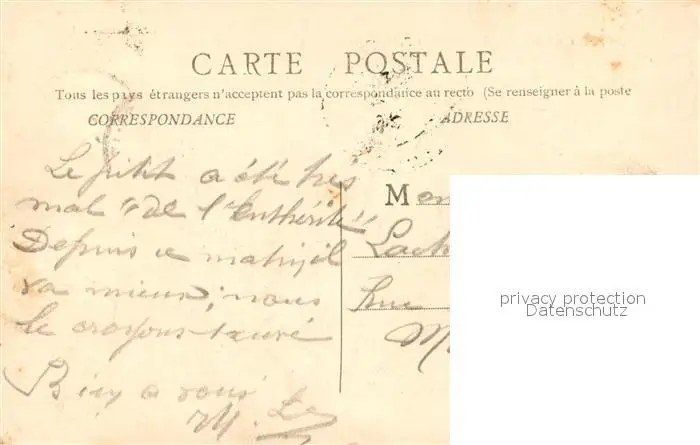 CARTE POSTALE
Tous les pays étrangers n'acceptent pas la correspondance au recto (Se renseigner à la poste
CORRESPONDANCE
ADRESSE
Le petit a été très
mal "de l'Enthérite"
Depuis ce matin il
va mieux; nous
le croyons sauvé
Bien à vous
M. Le
M
Rue
M
privacy protection
Datenschutz